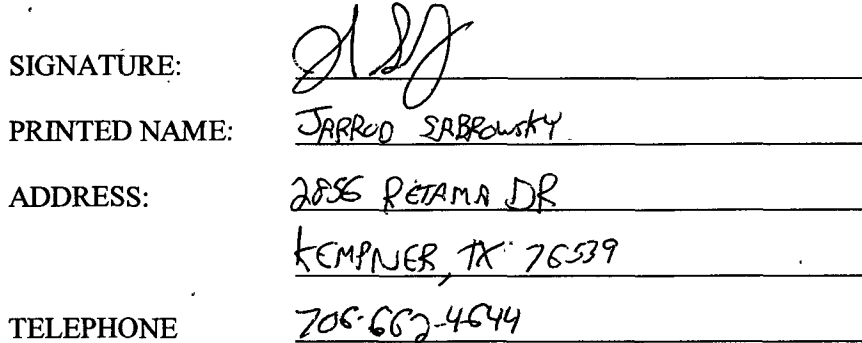 SIGNATURE:
PRINTED NAME: JARROD SABROWSKY
ADDRESS: 2856 RETAMA DR
KEMPNER, TX 76539
TELEPHONE 706-662-4644